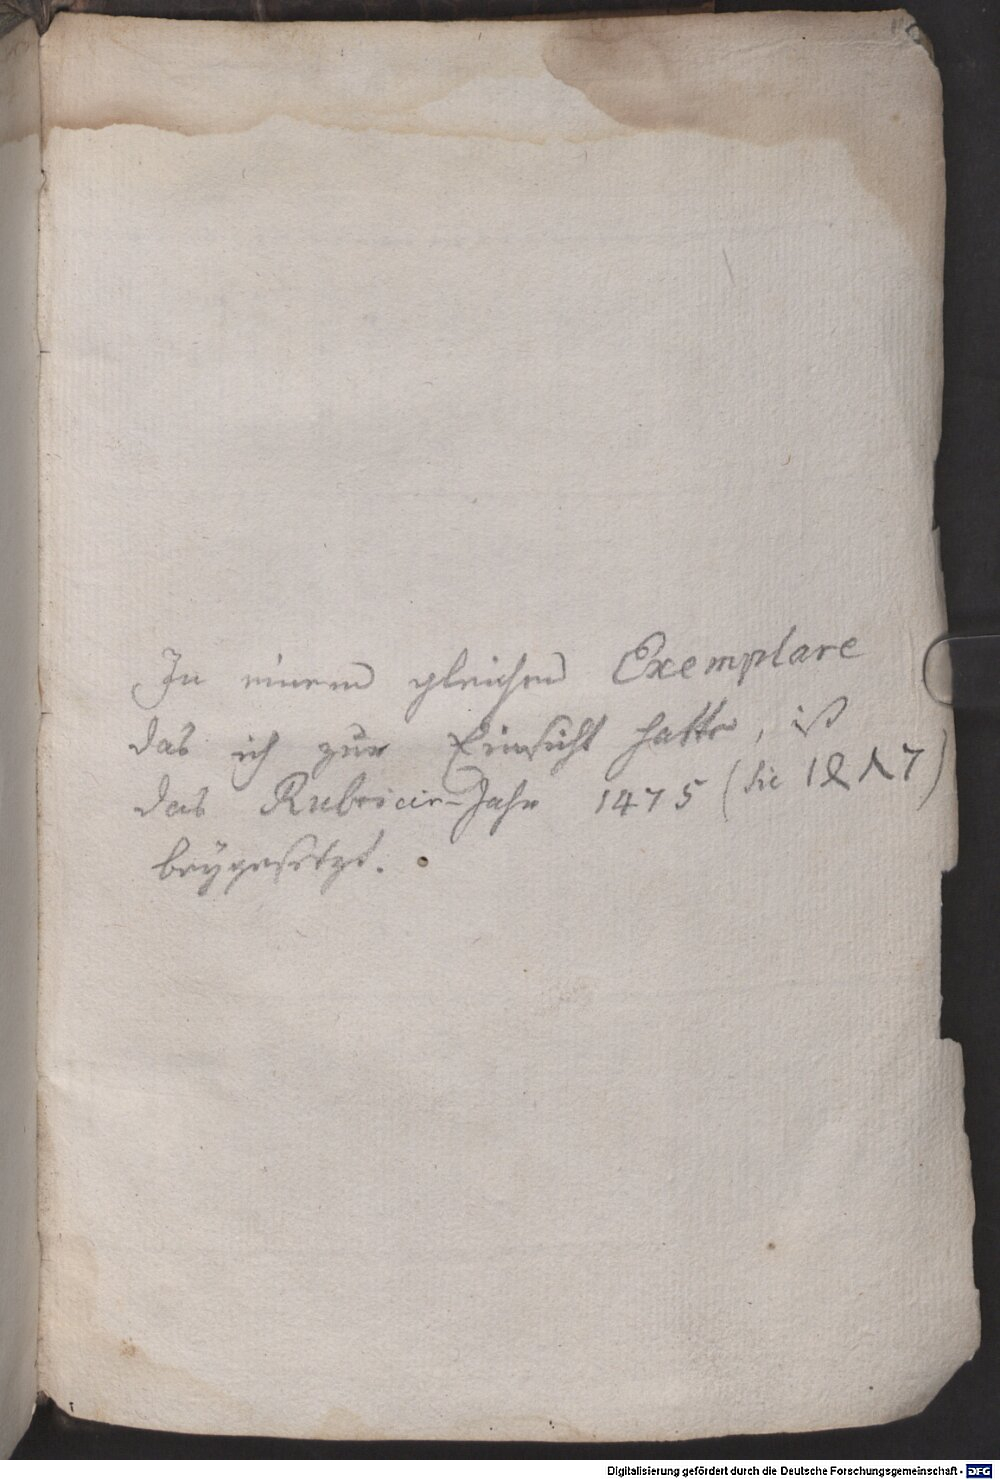 In einem gleichen Exemplare
das ich zur Einsicht hatte, ist
das Rubricir-Jahr 1475 (sic 1ꝶɅ7)
beÿgesetzt.
Digitalisierung gefördert durch die Deutsche Forschungsgemeinschaft - DFG